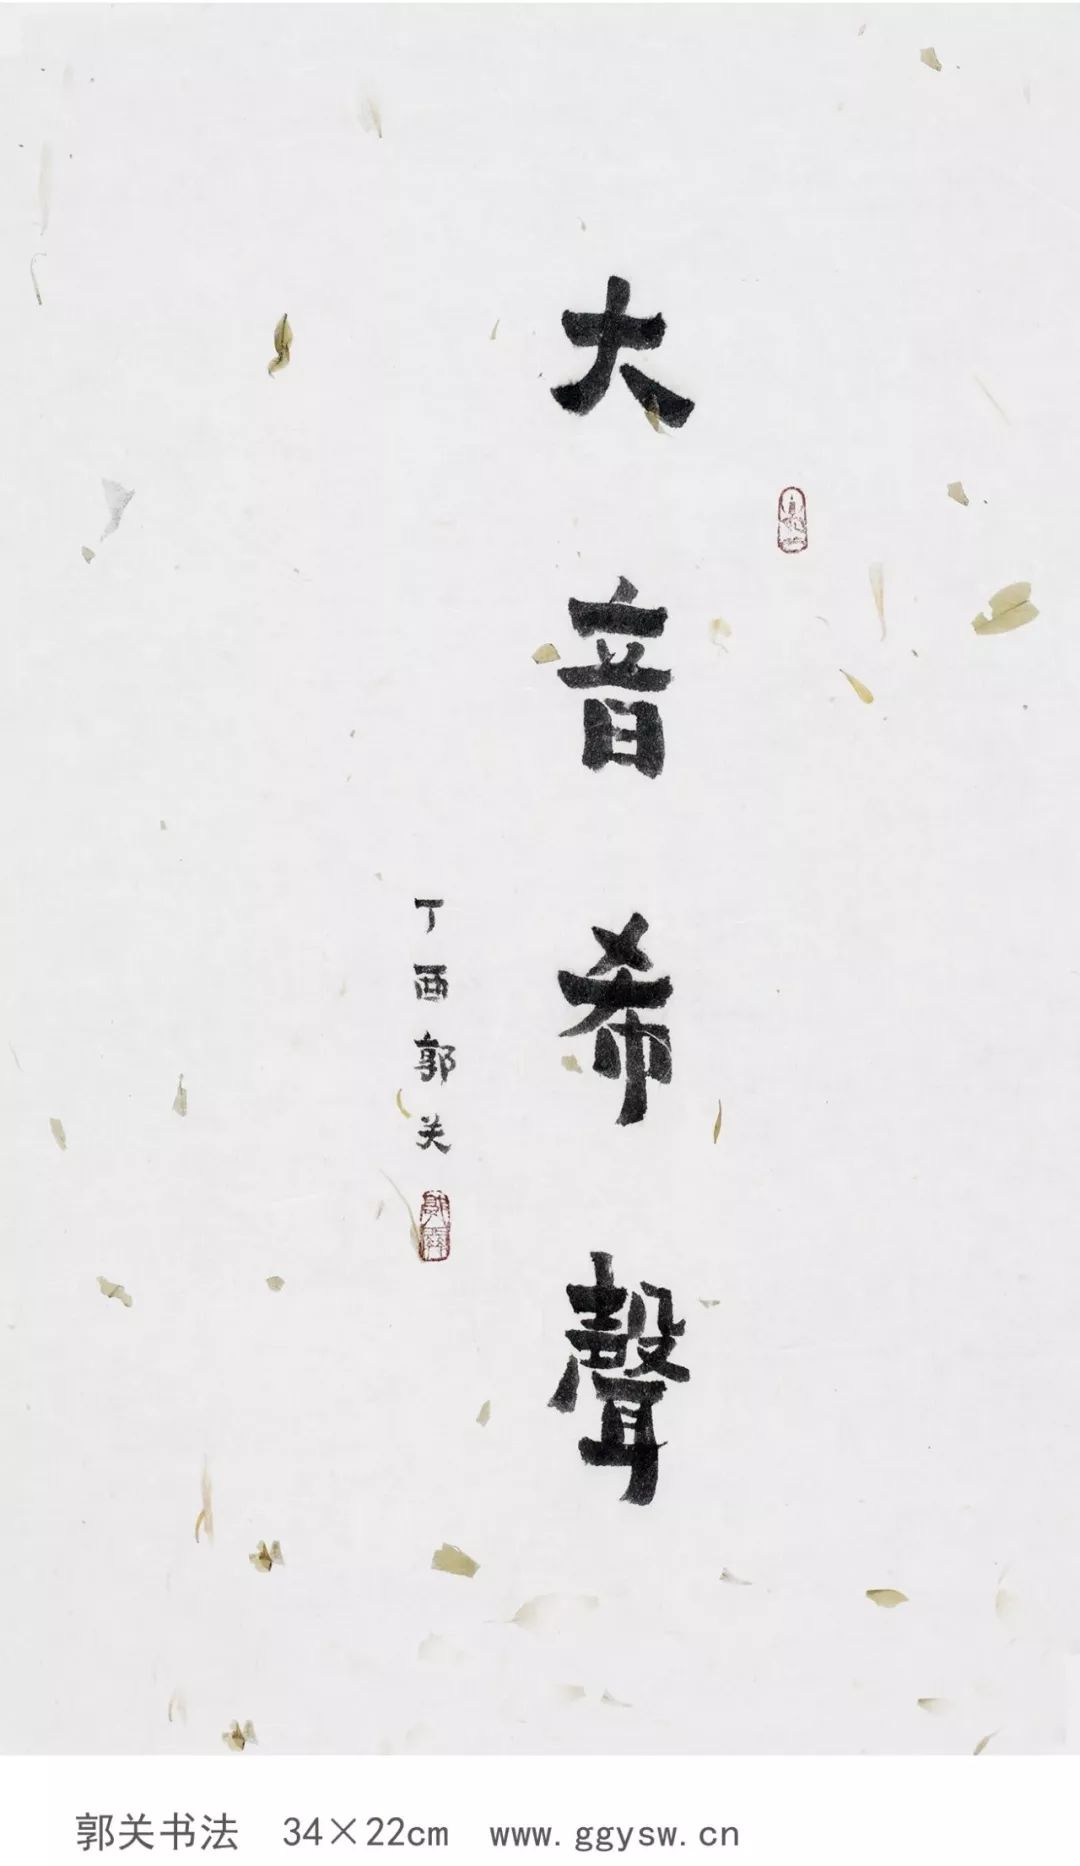 大音希聲
丁酉郭关
郭关书法 34×22cm www.ggysw.cn